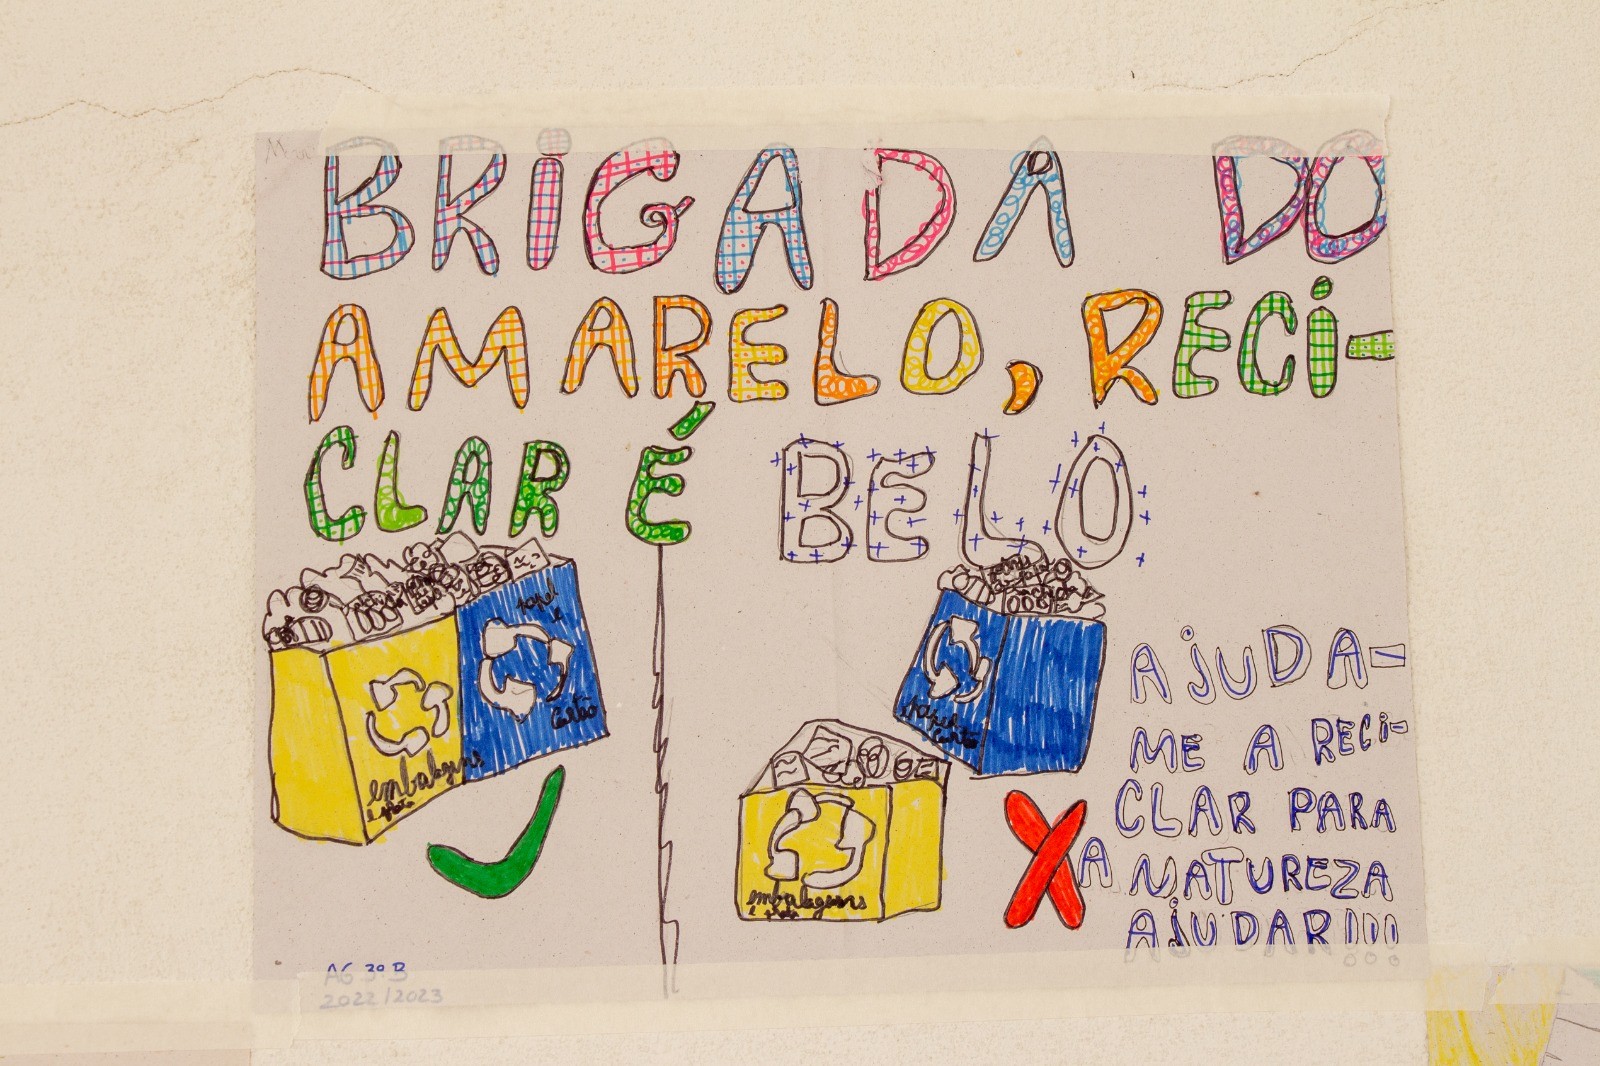 BRIGADA DO
AMARELO, RECI-
CLAR É BELO
papel
e
Cartão
embalagens
papel
e Cartão
embalagens
AJUDA-
ME A RECI-
CLAR PARA
A NATUREZA
AJUDAR!!!
AG 3º B
2022/2023